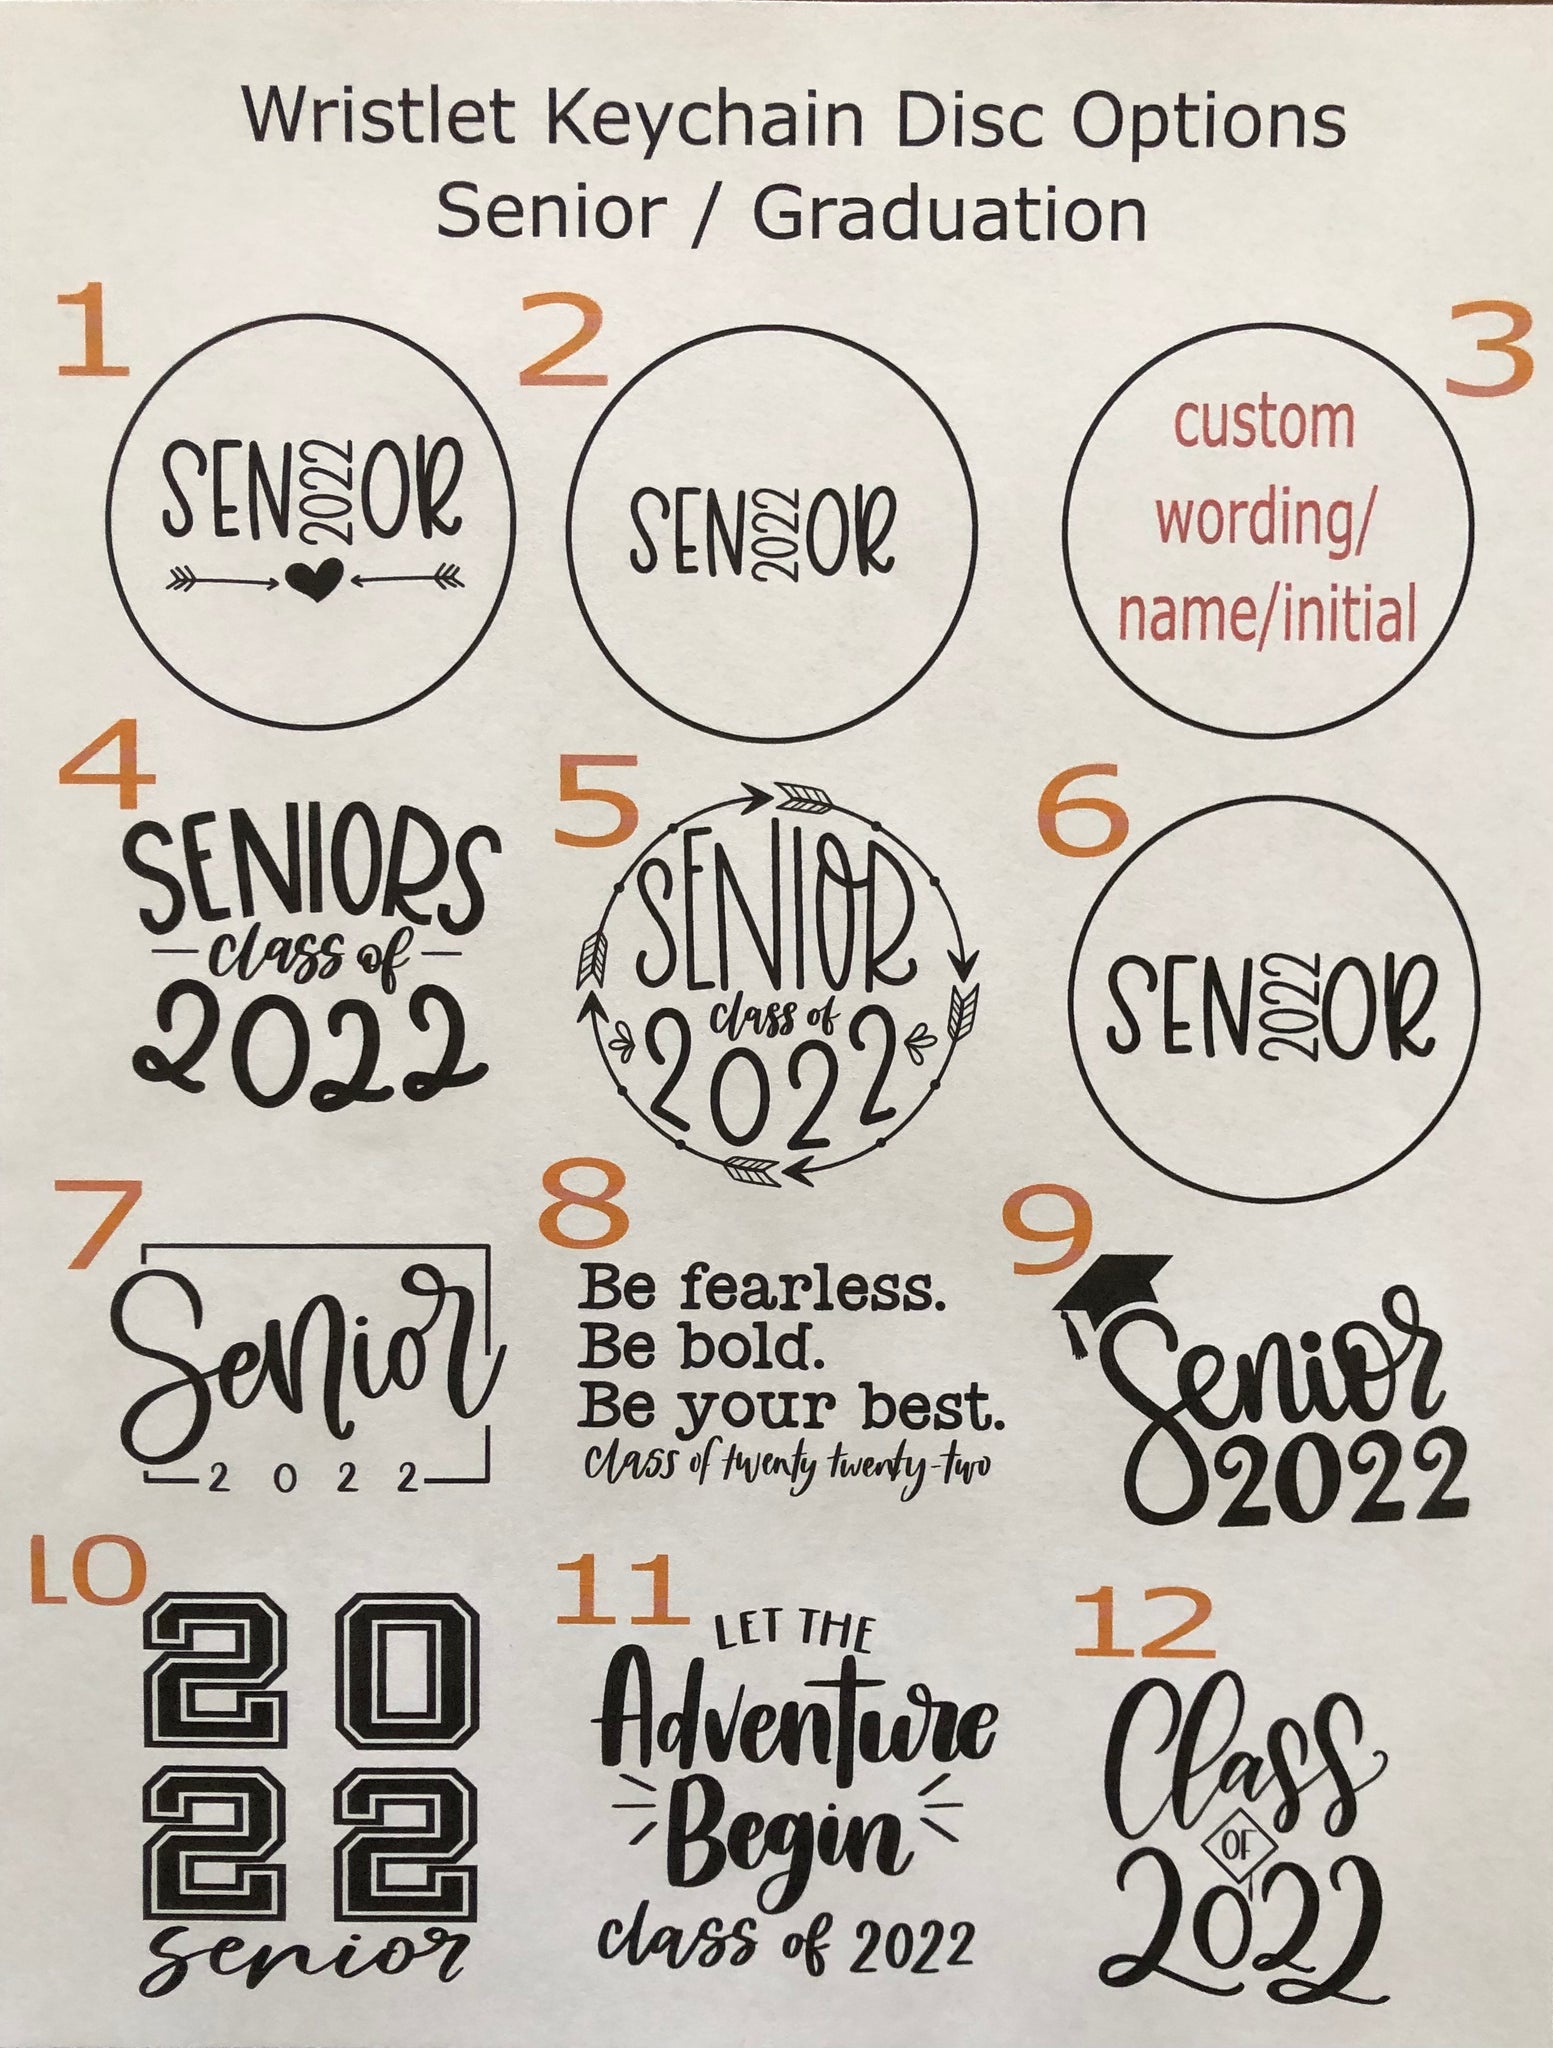 Wristlet Keychain Disc Options
Senior / Graduation
1
SEN2022OR
2
SEN2022OR
3
custom
wording/
name/initial
4
SENIORS
class of
2022
5
SENIOR
class of
2022
6
SEN2022OR
7
Senior
2022
8
Be fearless.
Be bold.
Be your best.
class of twenty twenty-two
9
Senior
2022
10
20
22
senior
11
LET THE
Adventure
Begin
class of 2022
12
Class
OF
2022